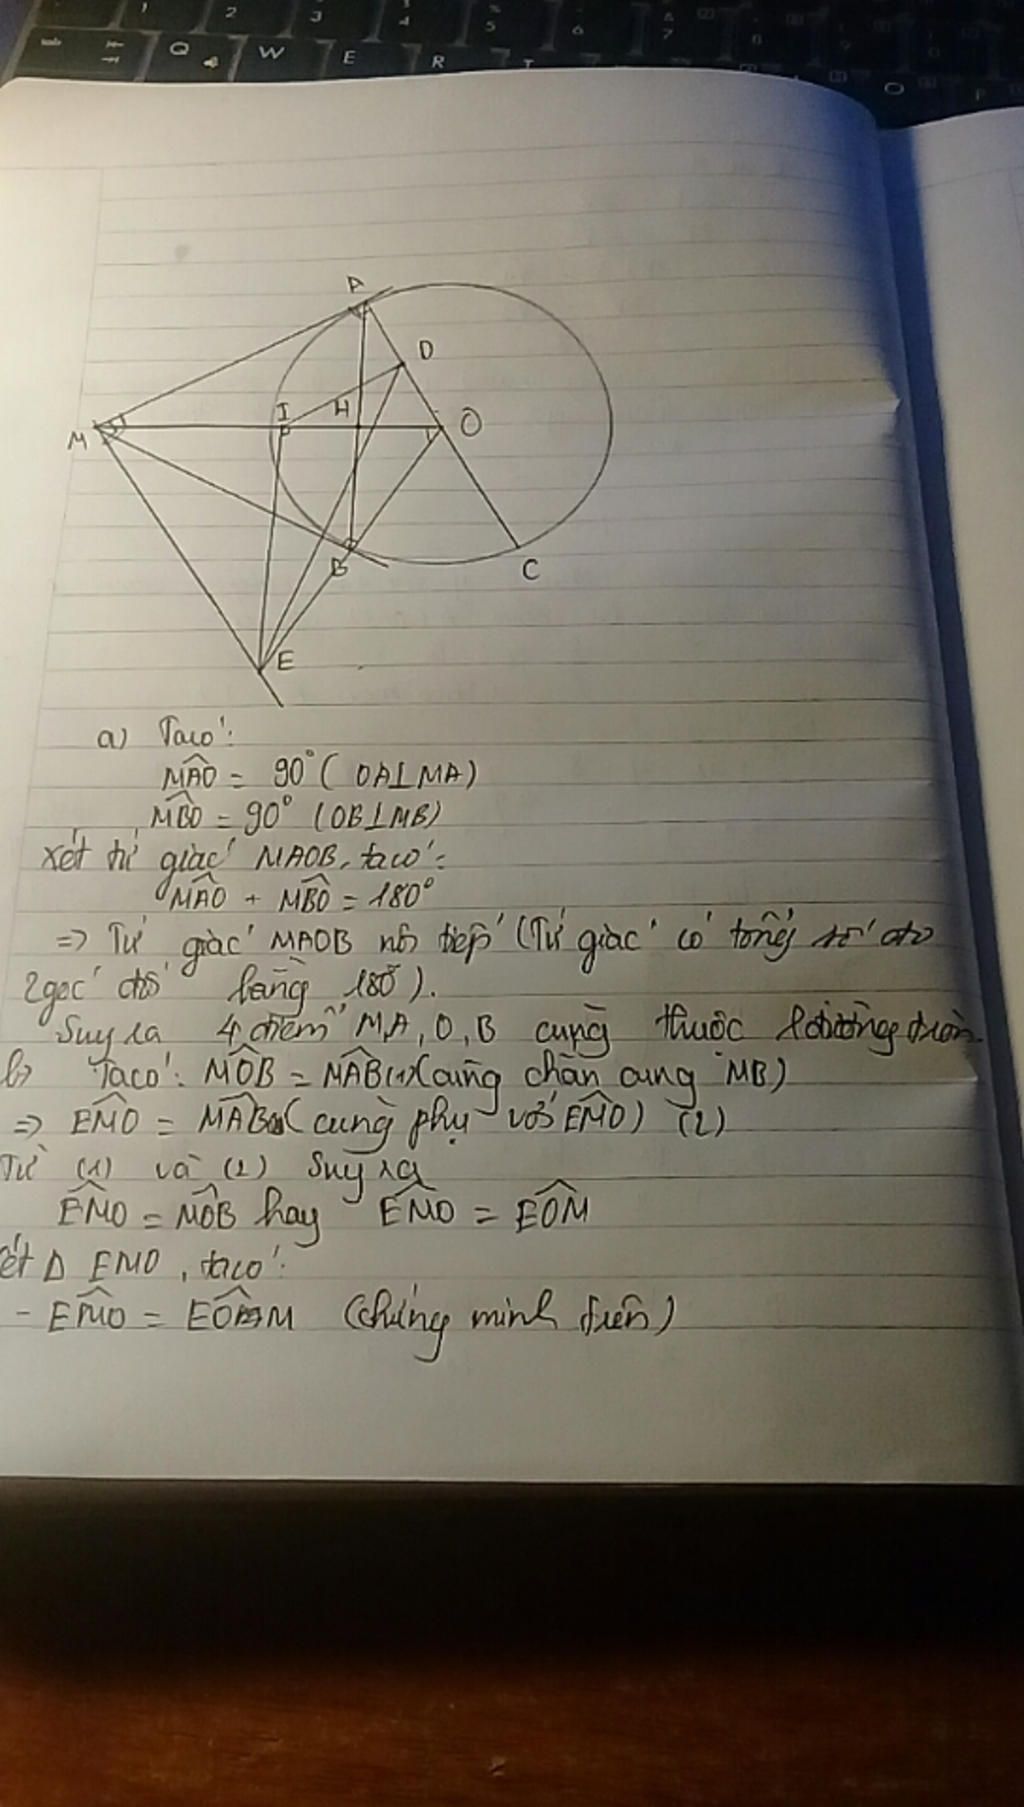 1 2 3 4 5 6 7
tab Q W E R T O P
A
D
I H
M O
B C
E
a) Ta có:
MÂO = 90° ( OA⊥MA)
MB̂O = 90° (OB⊥MB)
xét tứ giác MAOB, ta có:
MÂO + MB̂O = 180°
=> Tứ giác MAOB nội tiếp (Tứ giác có tổng số đo
2 góc đối bằng 180°).
Suy ra 4 điểm M, A, O, B cùng thuộc 1 đường tròn.
b) Ta có: MÔB = MÂB (1) (cùng chắn cung MB)
=> EM̂O = MÂB ( cùng phụ với EM̂O) (2)
Từ (1) và (2) Suy ra
EM̂O = MÔB hay EM̂O = EÔM
ét Δ EMO, ta có:
- EM̂O = EÔM (chứng minh trên)